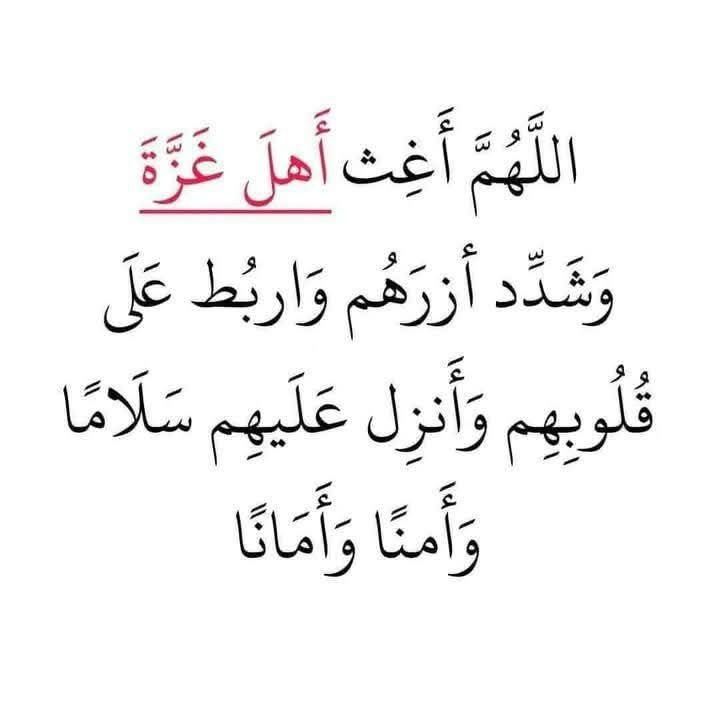 اللَّهُمَّ أَغِث أَهلَ غَزَّةَ
وَشَدِّد أزرَهُم وَاربُط عَلَى
قُلُوبِهِم وَأَنزِل عَلَيهِم سَلَامًا
وَأَمنًا وَأَمَانًا